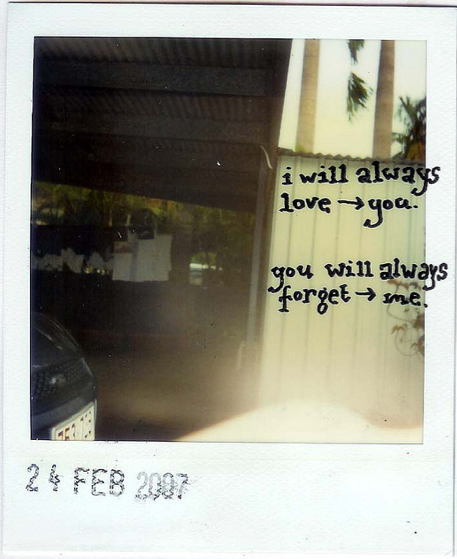 i will always
love → you.
you will always
forget → me.
24 FEB 2007